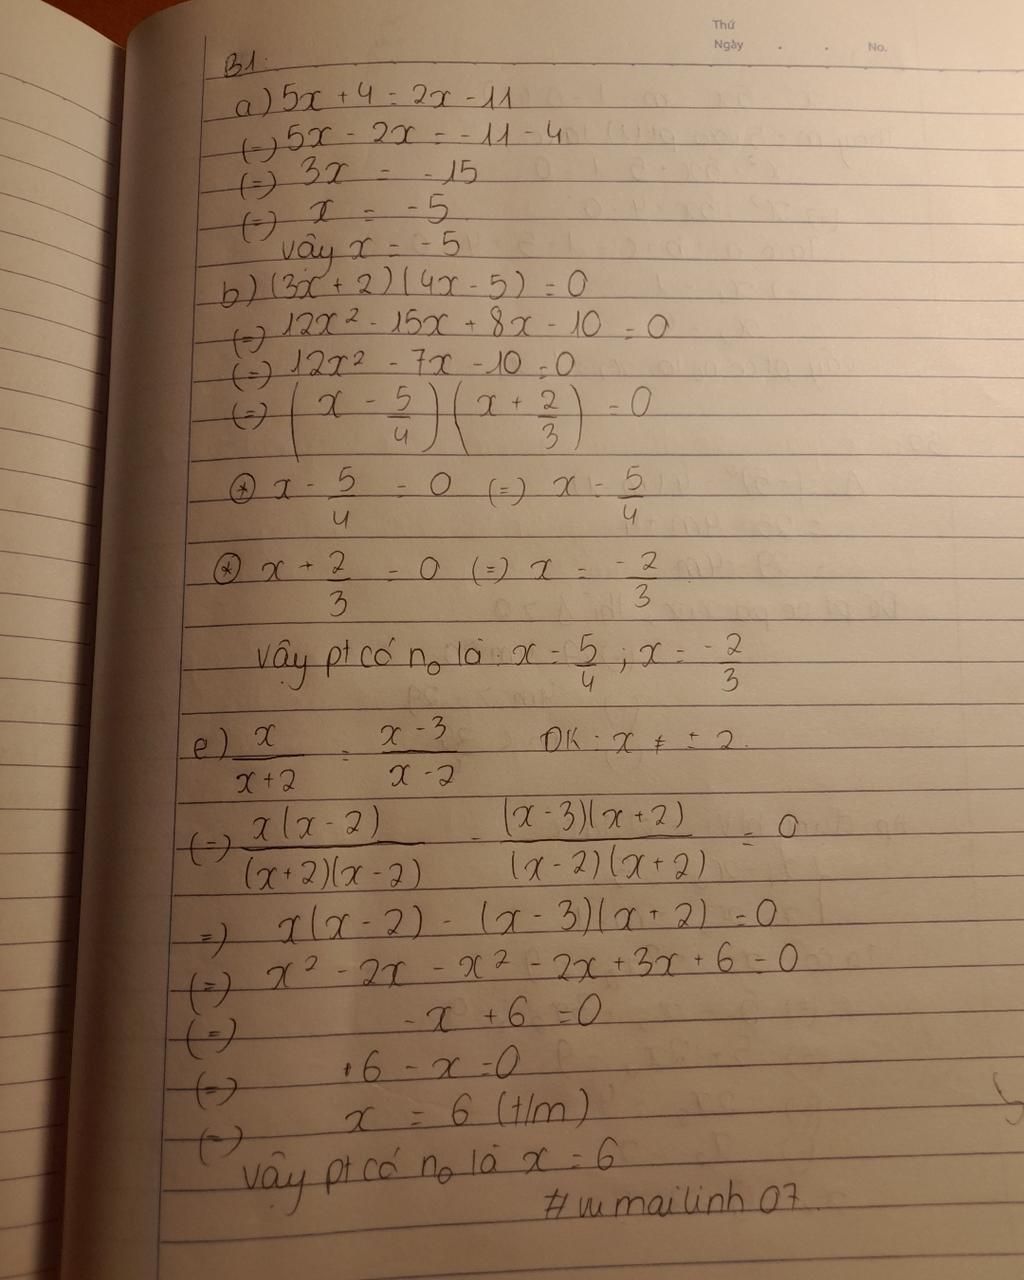 Thứ
Ngày . . No.
B1.
a) 5x + 4 = 2x - 11
(=) 5x - 2x = -11 - 4
(=) 3x = -15
(=) x = -5
vậy x = -5
b) (3x + 2)(4x - 5) = 0
(=) 12x² - 15x + 8x - 10 = 0
(=) 12x² - 7x - 10 = 0
(=) (x - 5/4)(x + 2/3) = 0
⊛ x - 5/4 = 0 (=) x = 5/4
⊛ x + 2/3 = 0 (=) x = -2/3
vậy pt có n₀ là : x = 5/4 ; x = -2/3
e) x/(x+2) = (x-3)/(x-2) ĐK : x ≠ ± 2.
(=) x(x-2)/((x+2)(x-2)) - (x-3)(x+2)/((x-2)(x+2)) = 0
=) x(x - 2) - (x - 3)(x + 2) = 0
(=) x² - 2x - x² - 2x + 3x + 6 = 0
(=) -x + 6 = 0
(=) +6 - x = 0
(=) x = 6 (t/m)
vậy pt có n₀ là x = 6
#vumailinh07